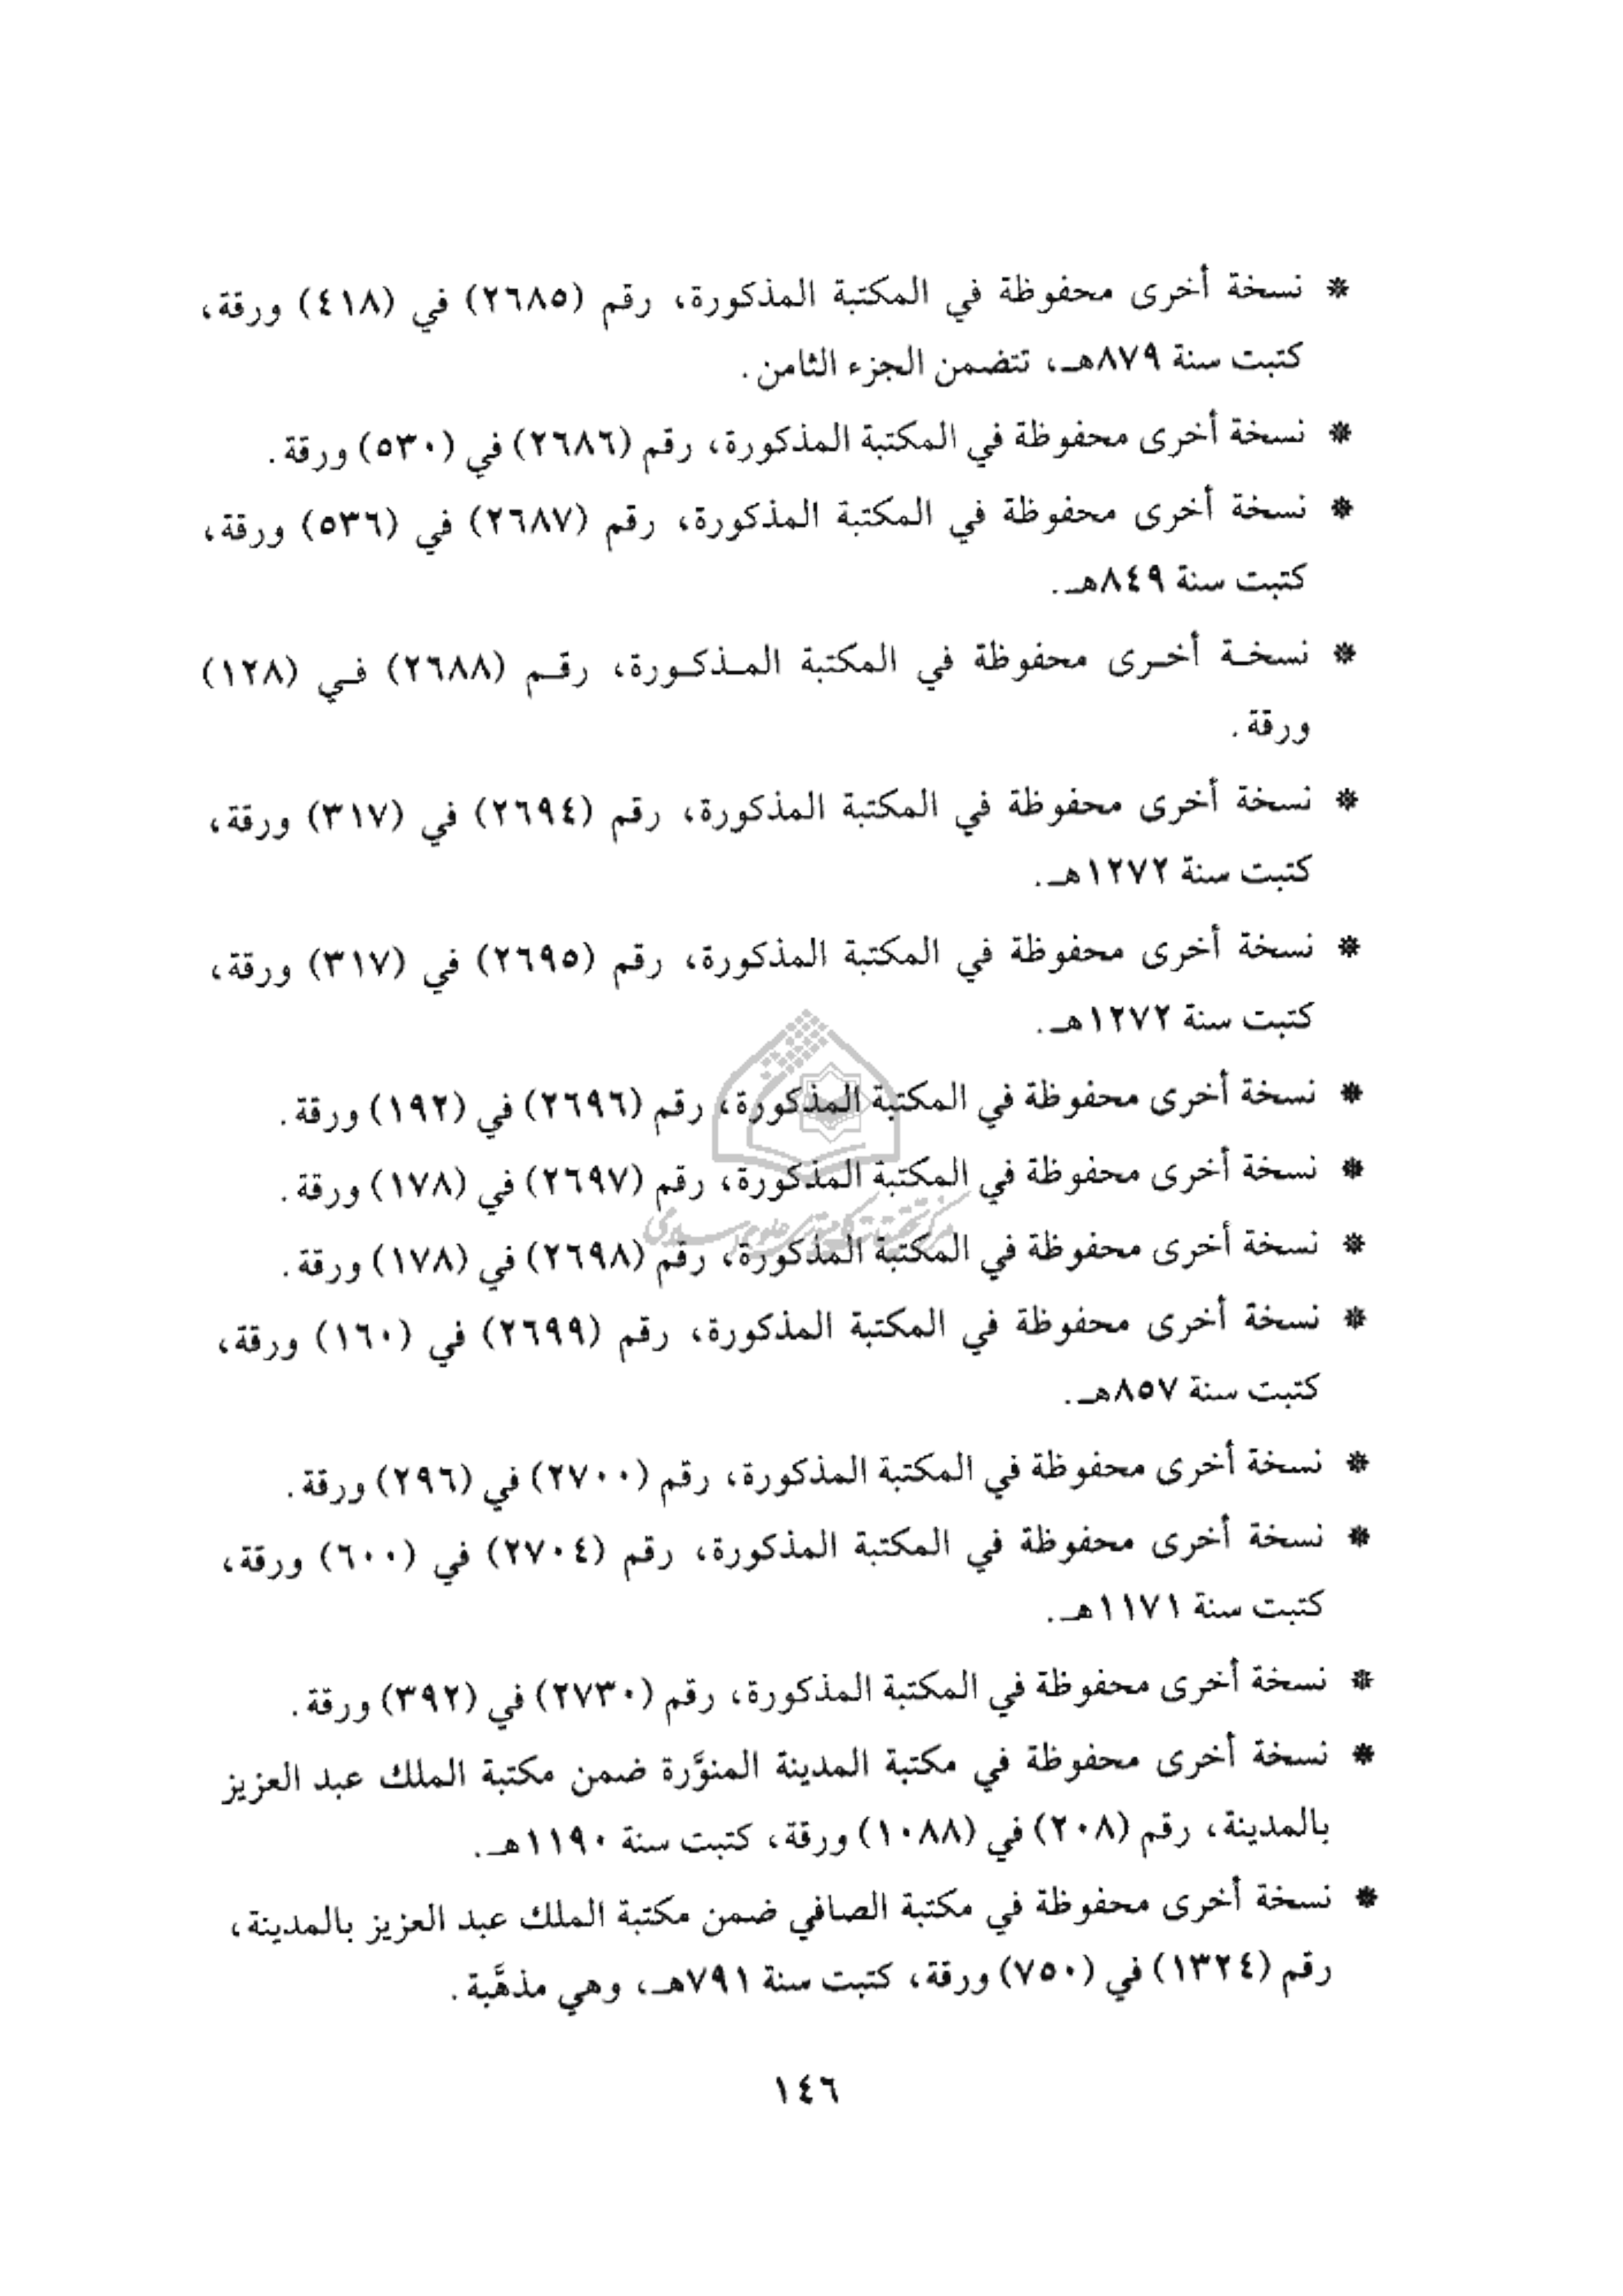 * نسخة أخرى محفوظة في المكتبة المذكورة، رقم (٢٦٨٥) في (٤١٨) ورقة،
كتبت سنة ٨٧٩هـ، تتضمن الجزء الثامن.
* نسخة أخرى محفوظة في المكتبة المذكورة، رقم (٢٦٨٦) في (٥٣٠) ورقة.
* نسخة أخرى محفوظة في المكتبة المذكورة، رقم (٢٦٨٧) في (٥٣٦) ورقة،
كتبت سنة ٨٤٩هـ.
* نسخة أخرى محفوظة في المكتبة المذكورة، رقم (٢٦٨٨) في (١٢٨)
ورقة.
* نسخة أخرى محفوظة في المكتبة المذكورة، رقم (٢٦٩٤) في (٣١٧) ورقة،
كتبت سنة ١٢٧٢هـ.
* نسخة أخرى محفوظة في المكتبة المذكورة، رقم (٢٦٩٥) في (٣١٧) ورقة،
كتبت سنة ١٢٧٢هـ.
* نسخة أخرى محفوظة في المكتبة المذكورة، رقم (٢٦٩٦) في (١٩٢) ورقة.
* نسخة أخرى محفوظة في المكتبة المذكورة، رقم (٢٦٩٧) في (١٧٨) ورقة.
* نسخة أخرى محفوظة في المكتبة المذكورة، رقم (٢٦٩٨) في (١٧٨) ورقة.
* نسخة أخرى محفوظة في المكتبة المذكورة، رقم (٢٦٩٩) في (١٦٠) ورقة،
كتبت سنة ٨٥٧هـ.
* نسخة أخرى محفوظة في المكتبة المذكورة، رقم (٢٧٠٠) في (٢٩٦) ورقة.
* نسخة أخرى محفوظة في المكتبة المذكورة، رقم (٢٧٠٤) في (٦٠٠) ورقة،
كتبت سنة ١١٧١هـ.
* نسخة أخرى محفوظة في المكتبة المذكورة، رقم (٢٧٣٠) في (٣٩٢) ورقة.
* نسخة أخرى محفوظة في مكتبة المدينة المنوَّرة ضمن مكتبة الملك عبد العزيز
بالمدينة، رقم (٢٠٨) في (١٠٨٨) ورقة، كتبت سنة ١١٩٠هـ.
* نسخة أخرى محفوظة في مكتبة الصافي ضمن مكتبة الملك عبد العزيز بالمدينة،
رقم (١٣٢٤) في (٧٥٠) ورقة، كتبت سنة ٧٩١هـ، وهي مذهَّبة.
١٤٦